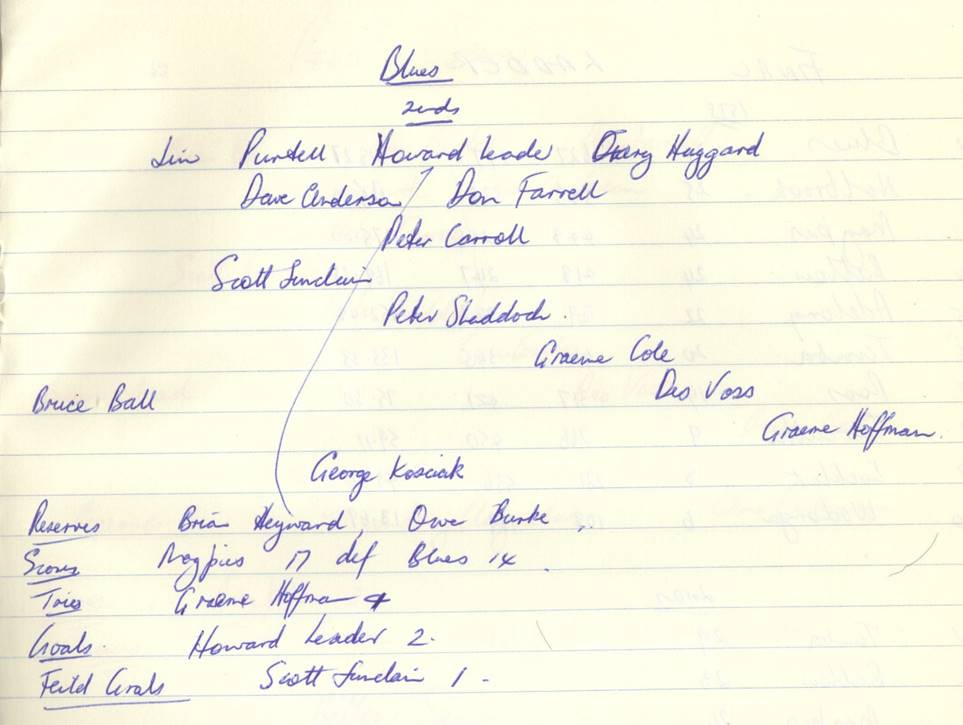 Blues
2nds
Jim Purtell Howard Leader Gary Haggard
Dave Anderson Don Farrell
Peter Carroll
Scott Sinclair
Peter Shaddock
Graeme Cole
Des Voss
Bruce Ball
Graeme Hoffman.
George Kosciak
Reserves Brian Heyward, Owe Burke
Scores Magpies 17 def Blues 14.
Tries Graeme Hoffman
Goals. Howard Leader 2.
Feild Goals Scott Sinclair 1.